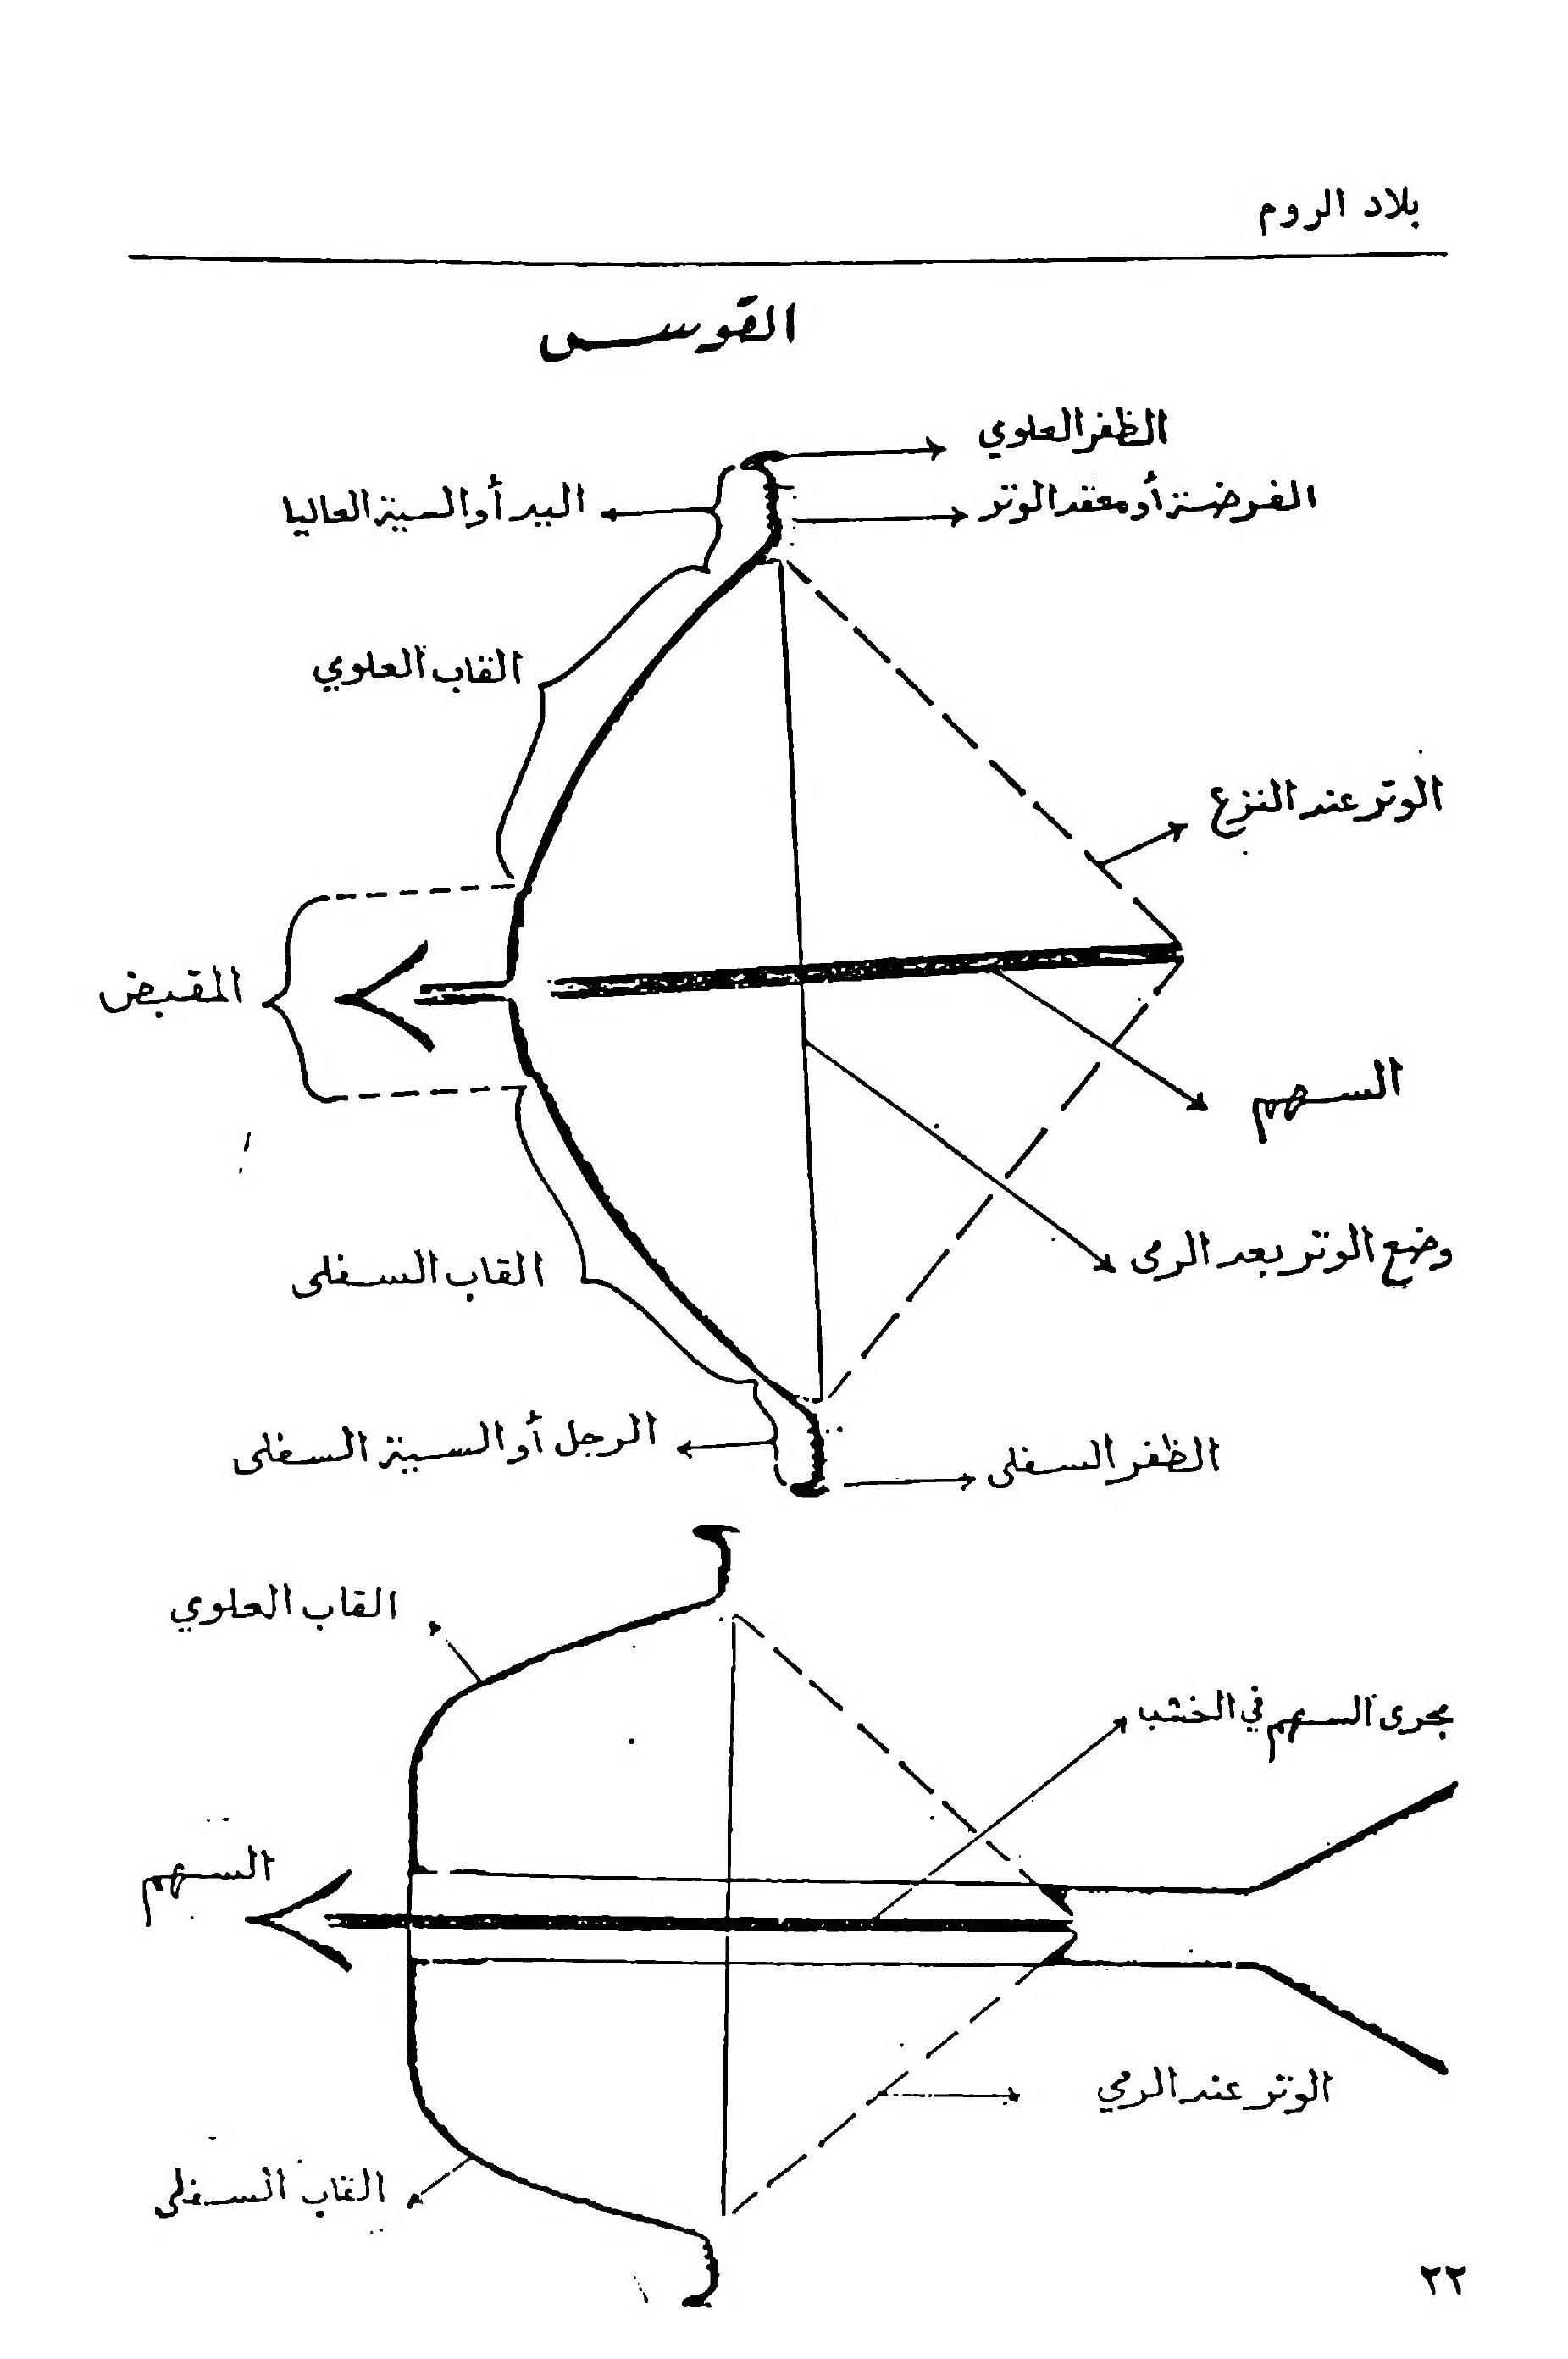 بلاد الروم
القوس
الظفر العلوي
الفرضة أو معقد الوتر
اليد أو السية العاليا
القاب العلوي
الوتر عند النزع
المقبض
السهم
وضع الوتر بعد الرمى
القاب السفلى
الرجل أو السية السفلى
الظفر السفلى
القاب العلوي
مجرى السهم في الخشب
السهم
الوتر عند الرمي
القاب السفلى
٢٢